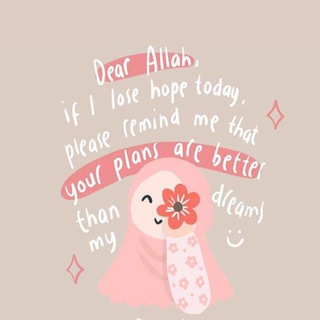 Dear Allah,
if I lose hope today,
please remind me that
your plans are better
than dreams
my